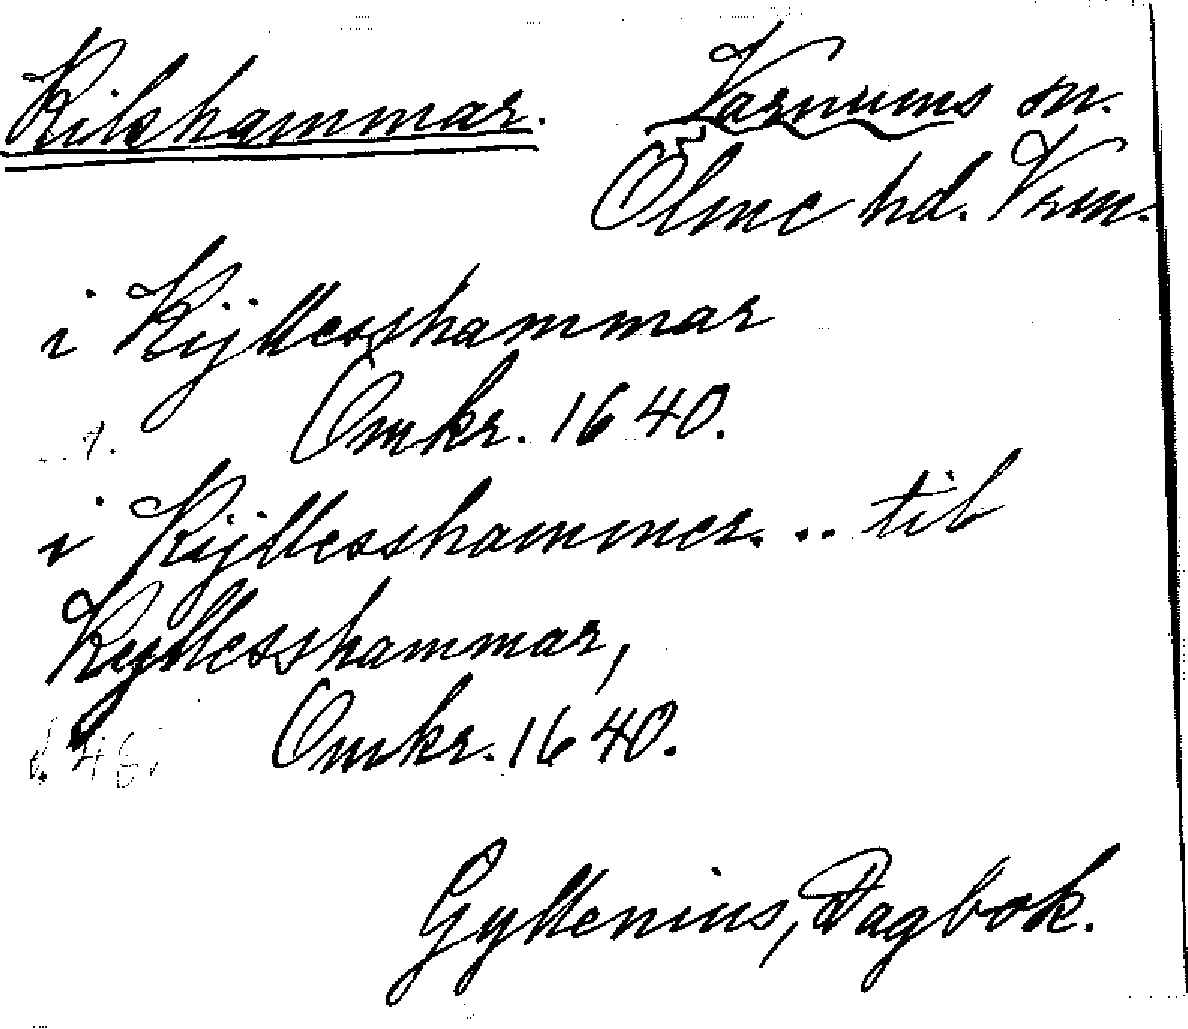 Kilshammar. Varnums sn.
Ölme hd. Vrm.
i Kijllesshammar
Omkr. 1640.
i Kijllesshammer. .. til
Kijllesshammar,
Omkr. 1640.
s. 48.
Gyllenius, Dagbok.